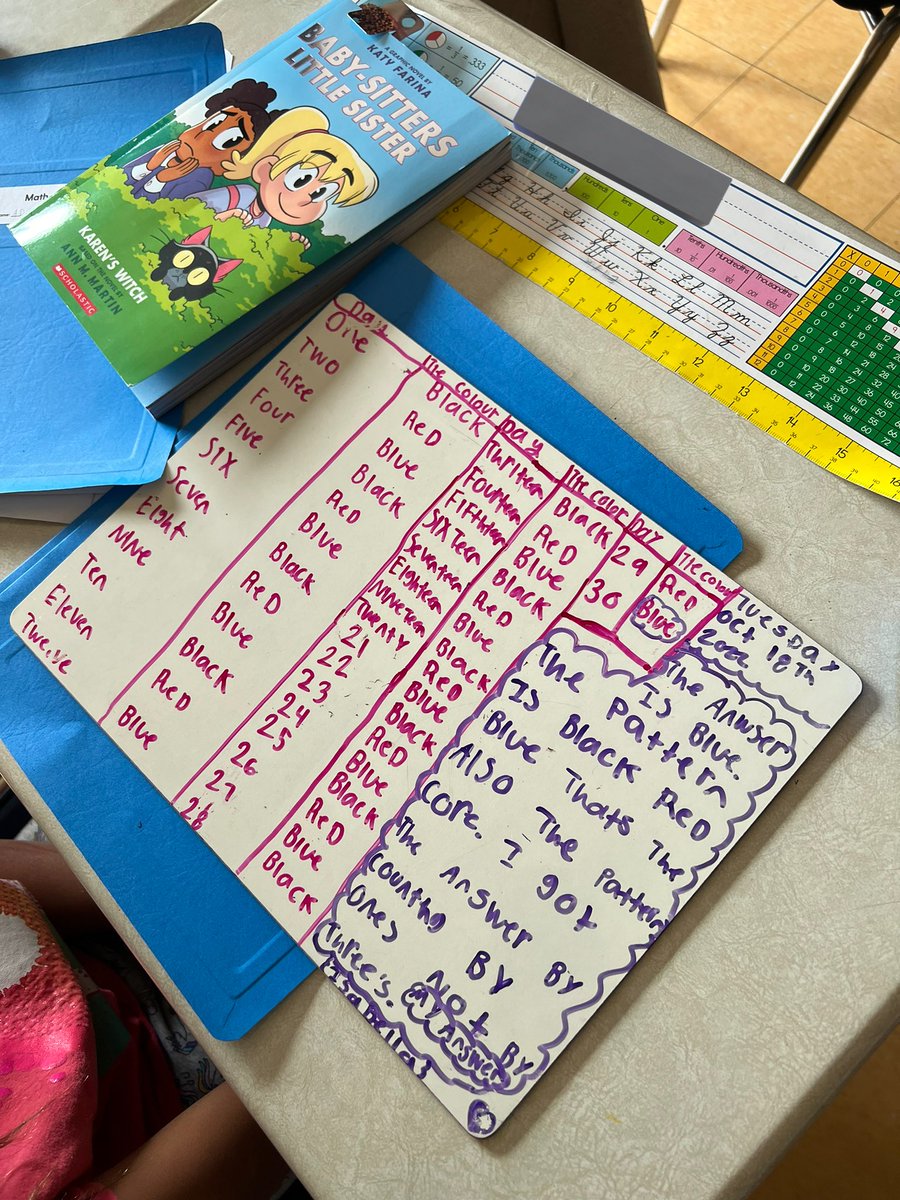 A GRAPHIC NOVEL BY
KATY FARINA
BABY-SITTERS
LITTLE SISTER
KAREN'S WITCH
BASED ON THE NOVEL BY
ANN M. MARTIN
SCHOLASTIC
Math
Day
One
Two
Three
Four
Five
Six
Seven
Eight
Nine
Ten
Eleven
Twelve
The colour
Black
ReD
Blue
Black
ReD
Blue
Black
ReD
Blue
Black
ReD
Blue
Day
Thriteen
Fourteen
Fifthteen
SIXTeen
Seventeen
Eighteen
NiNeTeen
Twenty
21
22
23
24
25
26
27
28
The color
Black
ReD
Blue
Black
ReD
Blue
Black
ReD
Blue
Black
ReD
Blue
Black
ReD
Blue
Black
DAY
29
30
The colour
ReD
Blue
TUesDAY
Oct 18Th
2022
The Anwser
Is Blue.
The Pattern
Is Black ReD
Blue Thats The
Also The Pattern
Core. I got
The Answer By
Counting By
Ones Not By
Three's.
my Answer
Tenths Hundredths Thousandths
Hundreds Tens One
100 10 1
Hh Ii Jj Kk Ll Mm
Uu Vv Ww Xx Yy Zz
6 7 8 9 10 11 12 13 14 15 16